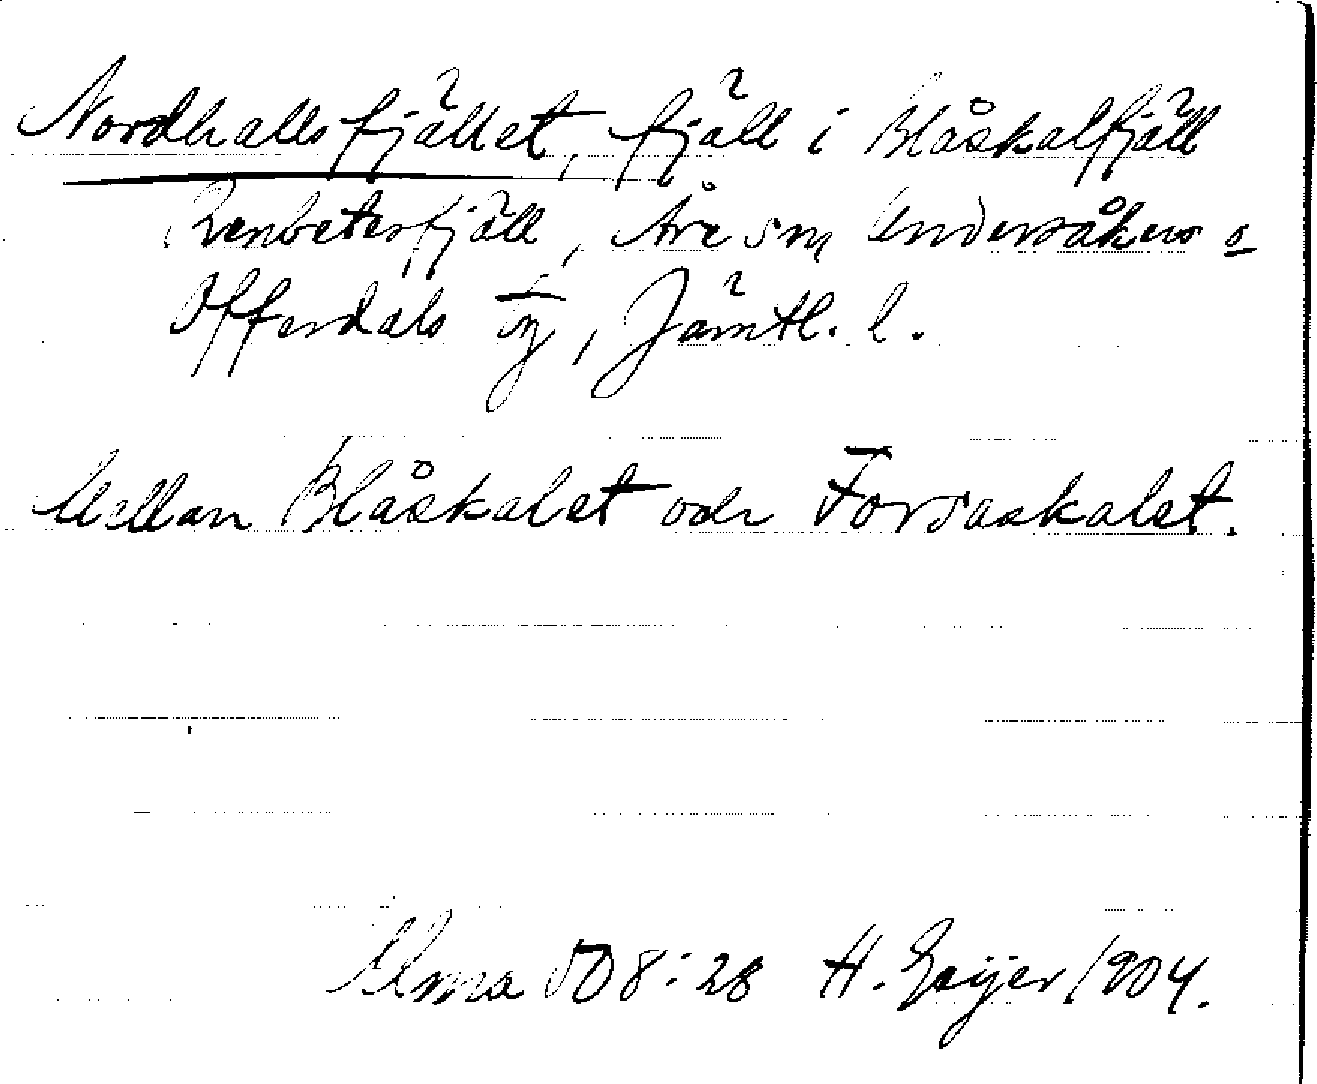 Nordhallsfjället, fjäll i Blåskalfjäll
Renbetesfjäll, Åre sn Undersåkers o
Offerdals tg, Jämtl. l.
Mellan Blåskalet och Forsaskalet.
Ulma 508:28 H. Geijer 1904.